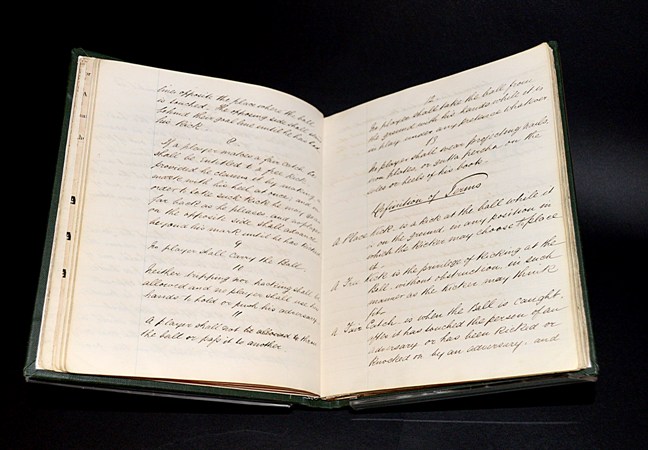 line opposite the place where the ball
is touched. The opposing side shall
behind their goal line until he has had
his Kick.
8
If a player makes a fair catch he
shall be entitled to a free kick,
provided he claims it by making a
mark with his heel at once; and in
order to take such Kick he may go as
far back as he pleases, and no player
on the opposite side shall advance
beyond his mark until he has Kicked
9
No player shall Carry the Ball.
10
Neither tripping nor hacking shall be
allowed and no player shall use his
hands to hold or push his adversary
11
A player shall not be allowed to throw
the ball or pass it to another.
12
No player shall take the ball from
the ground with his hands while it is
in play under any pretence whatever
13
No player shall wear projecting nails,
iron plates, or gutta percha on the
soles or heels of his boots.
Definition of Terms
A Place Kick is a kick at the ball while it
is on the ground in any position in
which the Kicker may choose to place
it.
A Free Kick is the privilege of Kicking at the
Ball without obstruction in such
manner as the Kicker may think
fit.
A Fair Catch is when the Ball is caught
after it has touched the person of an
adversary or has been Kicked or
knocked on by an adversary, and